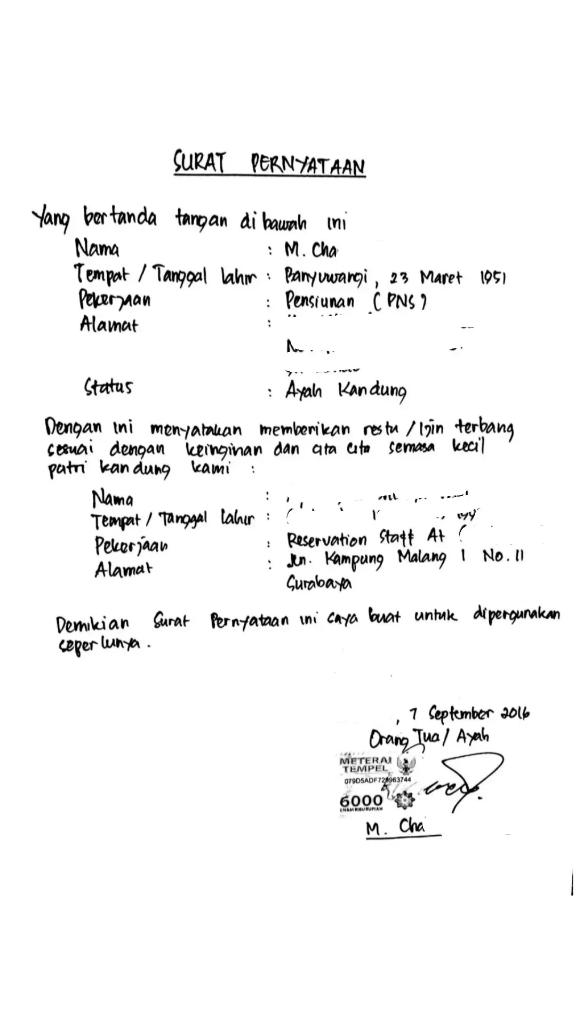 SURAT PERNYATAAN
Yang bertanda tangan dibawah ini
Nama : M. Cha
Tempat / Tanggal lahir : Banyuwangi, 23 Maret 1951
Pekerjaan : Pensiunan (PNS)
Alamat :
Status : Ayah Kandung
Dengan ini menyatakan memberikan restu / Izin terbang
sesuai dengan keinginan dan cita cita semasa kecil
putri kandung kami :
Nama :
Tempat / Tanggal lahir :
Pekerjaan : Reservation Staff At
Alamat : Jln. Kampung Malang 1 No. 11
Surabaya
Demikian Surat Pernyataan ini saya buat untuk dipergunakan
seperlunya.
, 7 September 2016
Orang Tua / Ayah
METERAI
TEMPEL
6000
ENAM RIBU RUPIAH
M. Cha